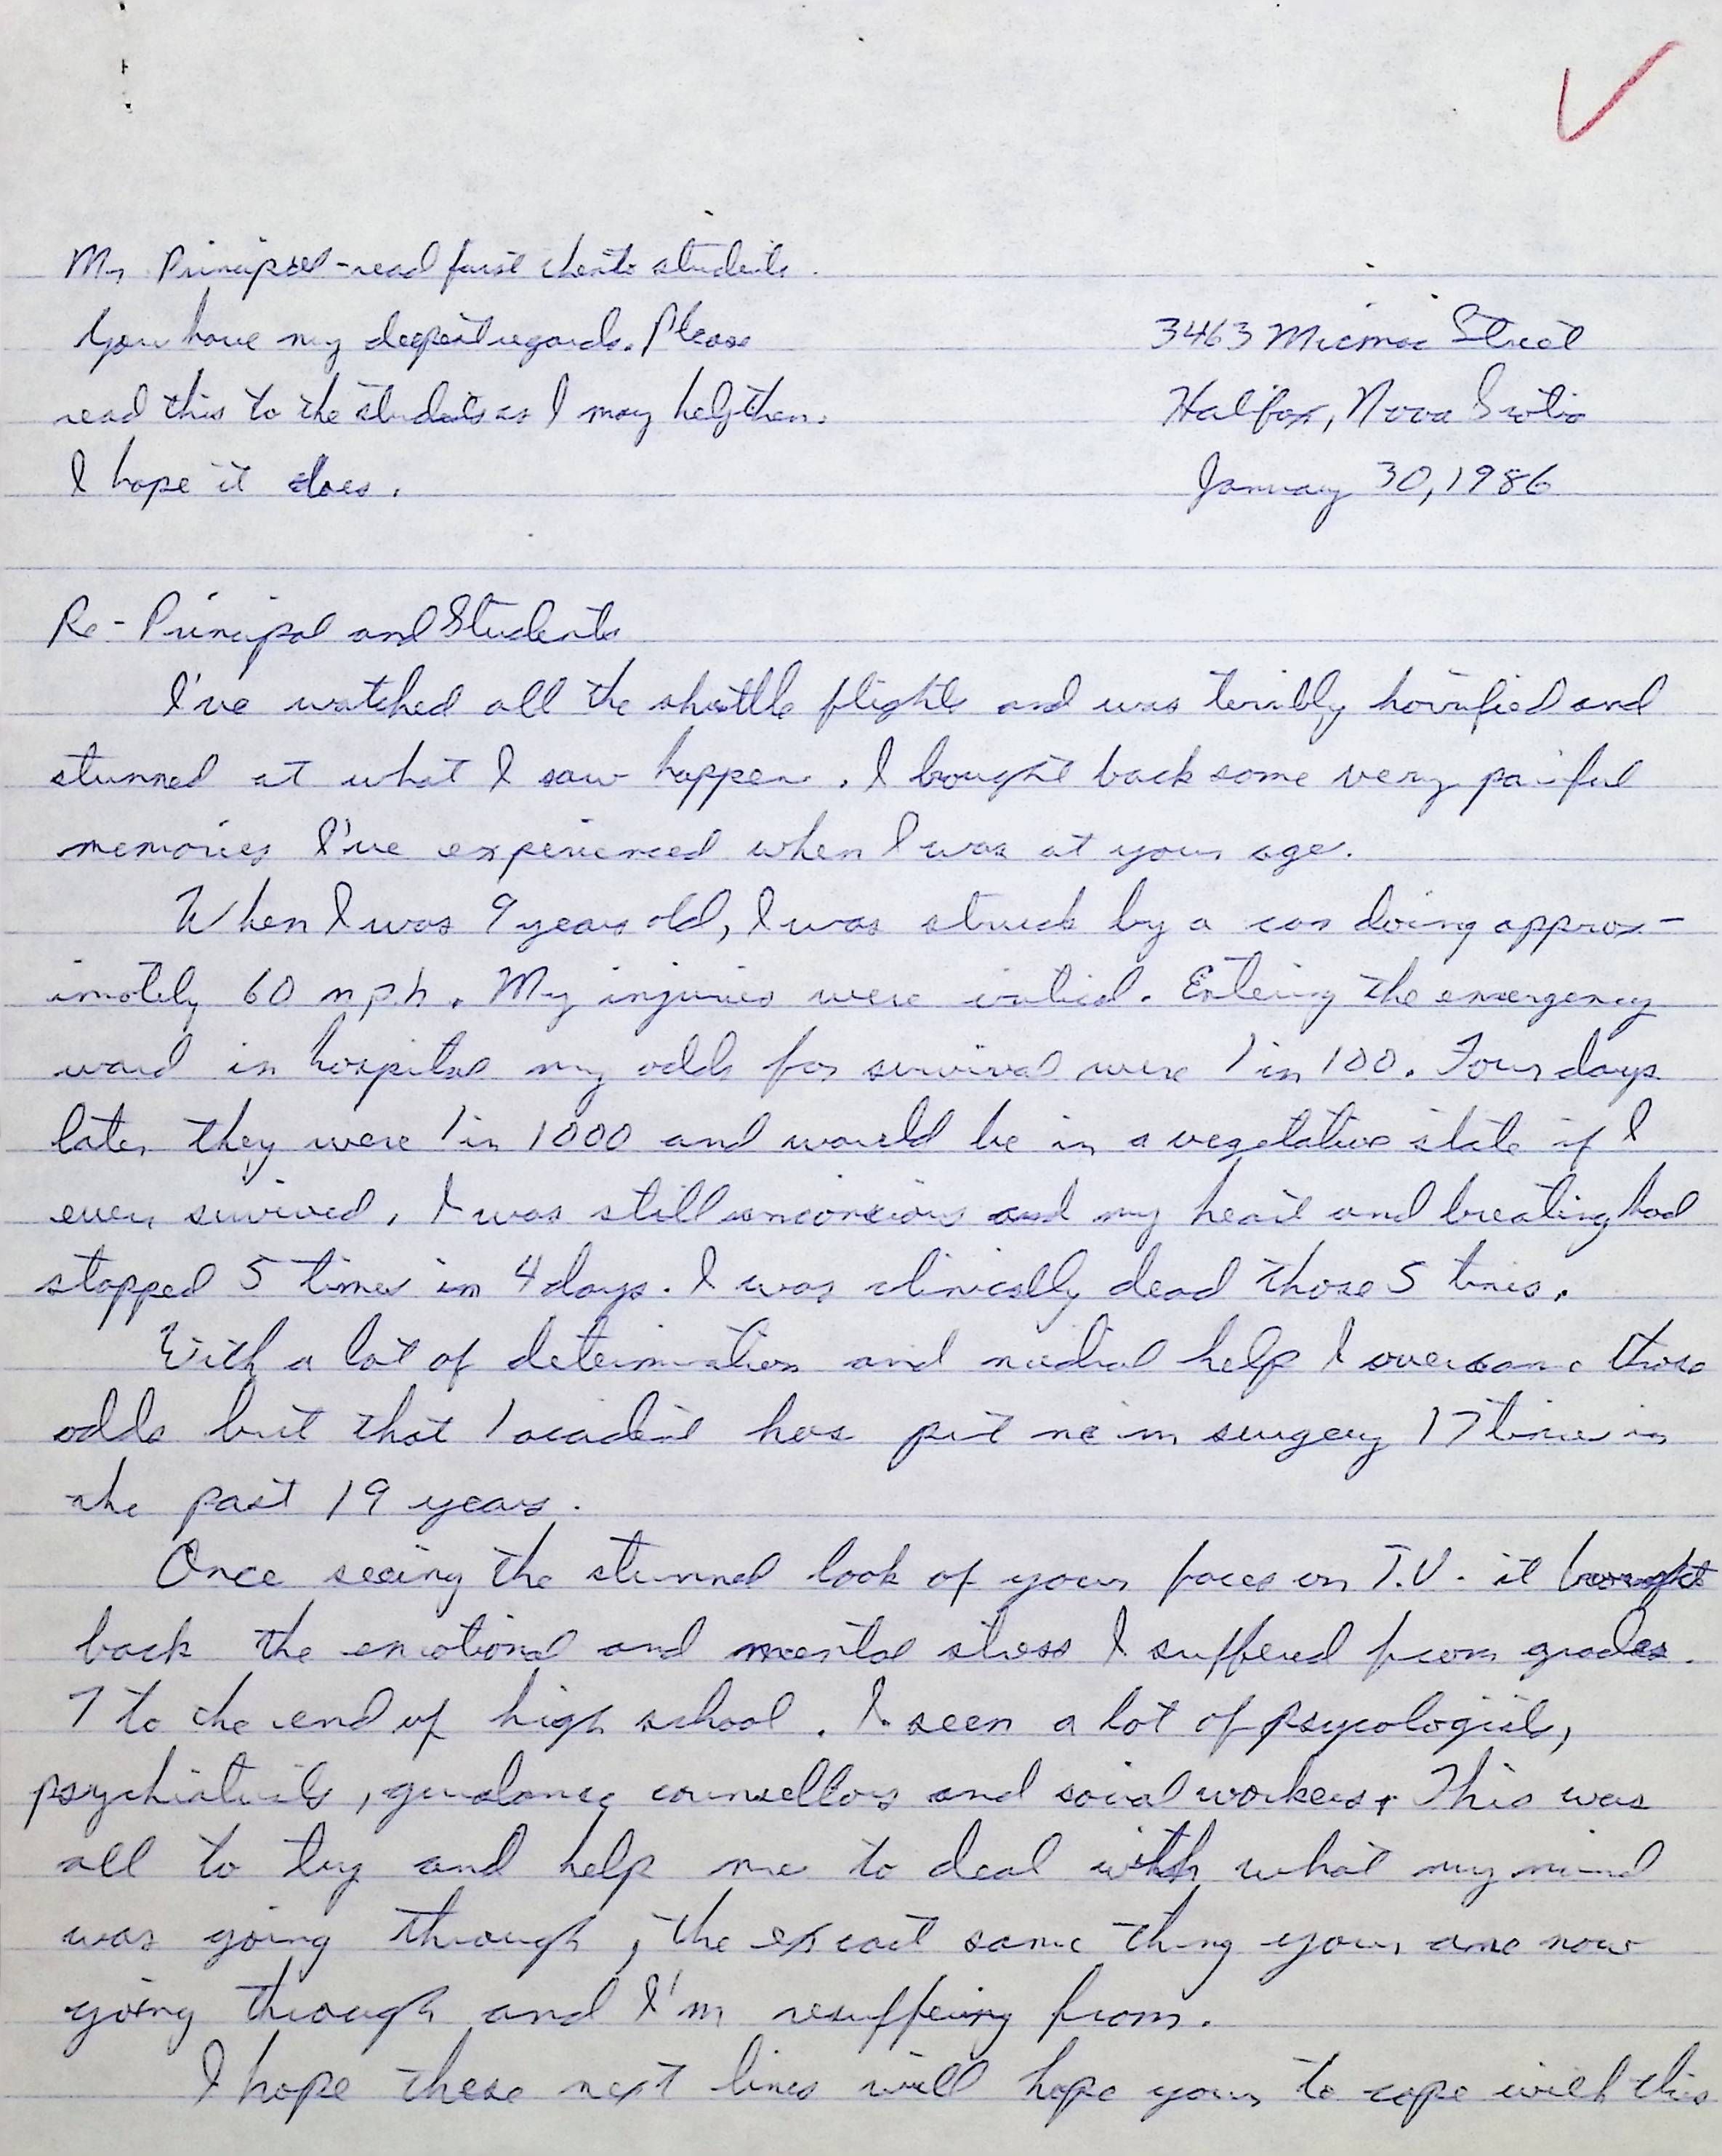 Mr Principal - read first then to students.
You have my deepest regards. Please
read this to the students as I may help them.
I hope it does.
3463 Micmac Street
Halifax, Nova Scotia
January 30, 1986
Re - Principal and Students
I've watched all the shuttle flights and was terribly horrified and
stunned at what I saw happen. I brought back some very painful
memories I've experienced when I was at your age.
When I was 9 years old, I was struck by a car doing approx-
imately 60 mph. My injuries were critical. Entering the emergency
ward in hospital my odds for survival were 1 in 100. Four days
later they were 1 in 1000 and would be in a vegetative state if I
ever survived. I was still unconscious and my heart and breating had
stopped 5 times in 4 days. I was clinically dead those 5 times.
With a lot of determination and medical help I overcame those
odds but that 1 accident has put me in surgery 17 times in
the past 19 years.
Once seeing the stunned look of your faces on T.V. it brought
back the emotional and mental stress I suffered from grades
7 to the end of high school. I seen a lot of psycologist,
psychiatrists, guidance counsellors and social workers. This was
all to try and help me to deal with what my mind
was going through, the excact same thing your are now
going through and I'm resuffering from.
I hope these next lines will hope your to cope with this